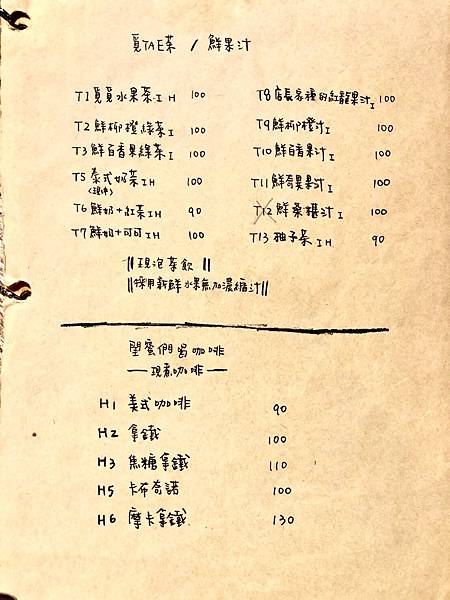 覓TAE茶 / 鮮果汁
T1 覓覓水果茶 I H 100
T2 鮮柳橙綠茶 I 100
T3 鮮百香果綠茶 I 100
T5 泰式奶茶 I H 100
(現沖)
T6 鮮奶+紅茶 I H 90
T7 鮮奶+可可 I H 100
T8 店長家種的紅龍果汁 I 100
T9 鮮柳橙汁 I 100
T10 鮮百香果汁 I 100
T11 鮮奇異果汁 I 100
T12 鮮桑椹汁 I 100
T13 柚子茶 I H 90
||現泡茶飲||
||採用新鮮水果無加濃糖汁||
閨蜜們喝咖啡
—現煮咖啡—
H1 美式咖啡 90
H2 拿鐵 100
H3 焦糖拿鐵 110
H5 卡布奇諾 100
H6 摩卡拿鐵 130